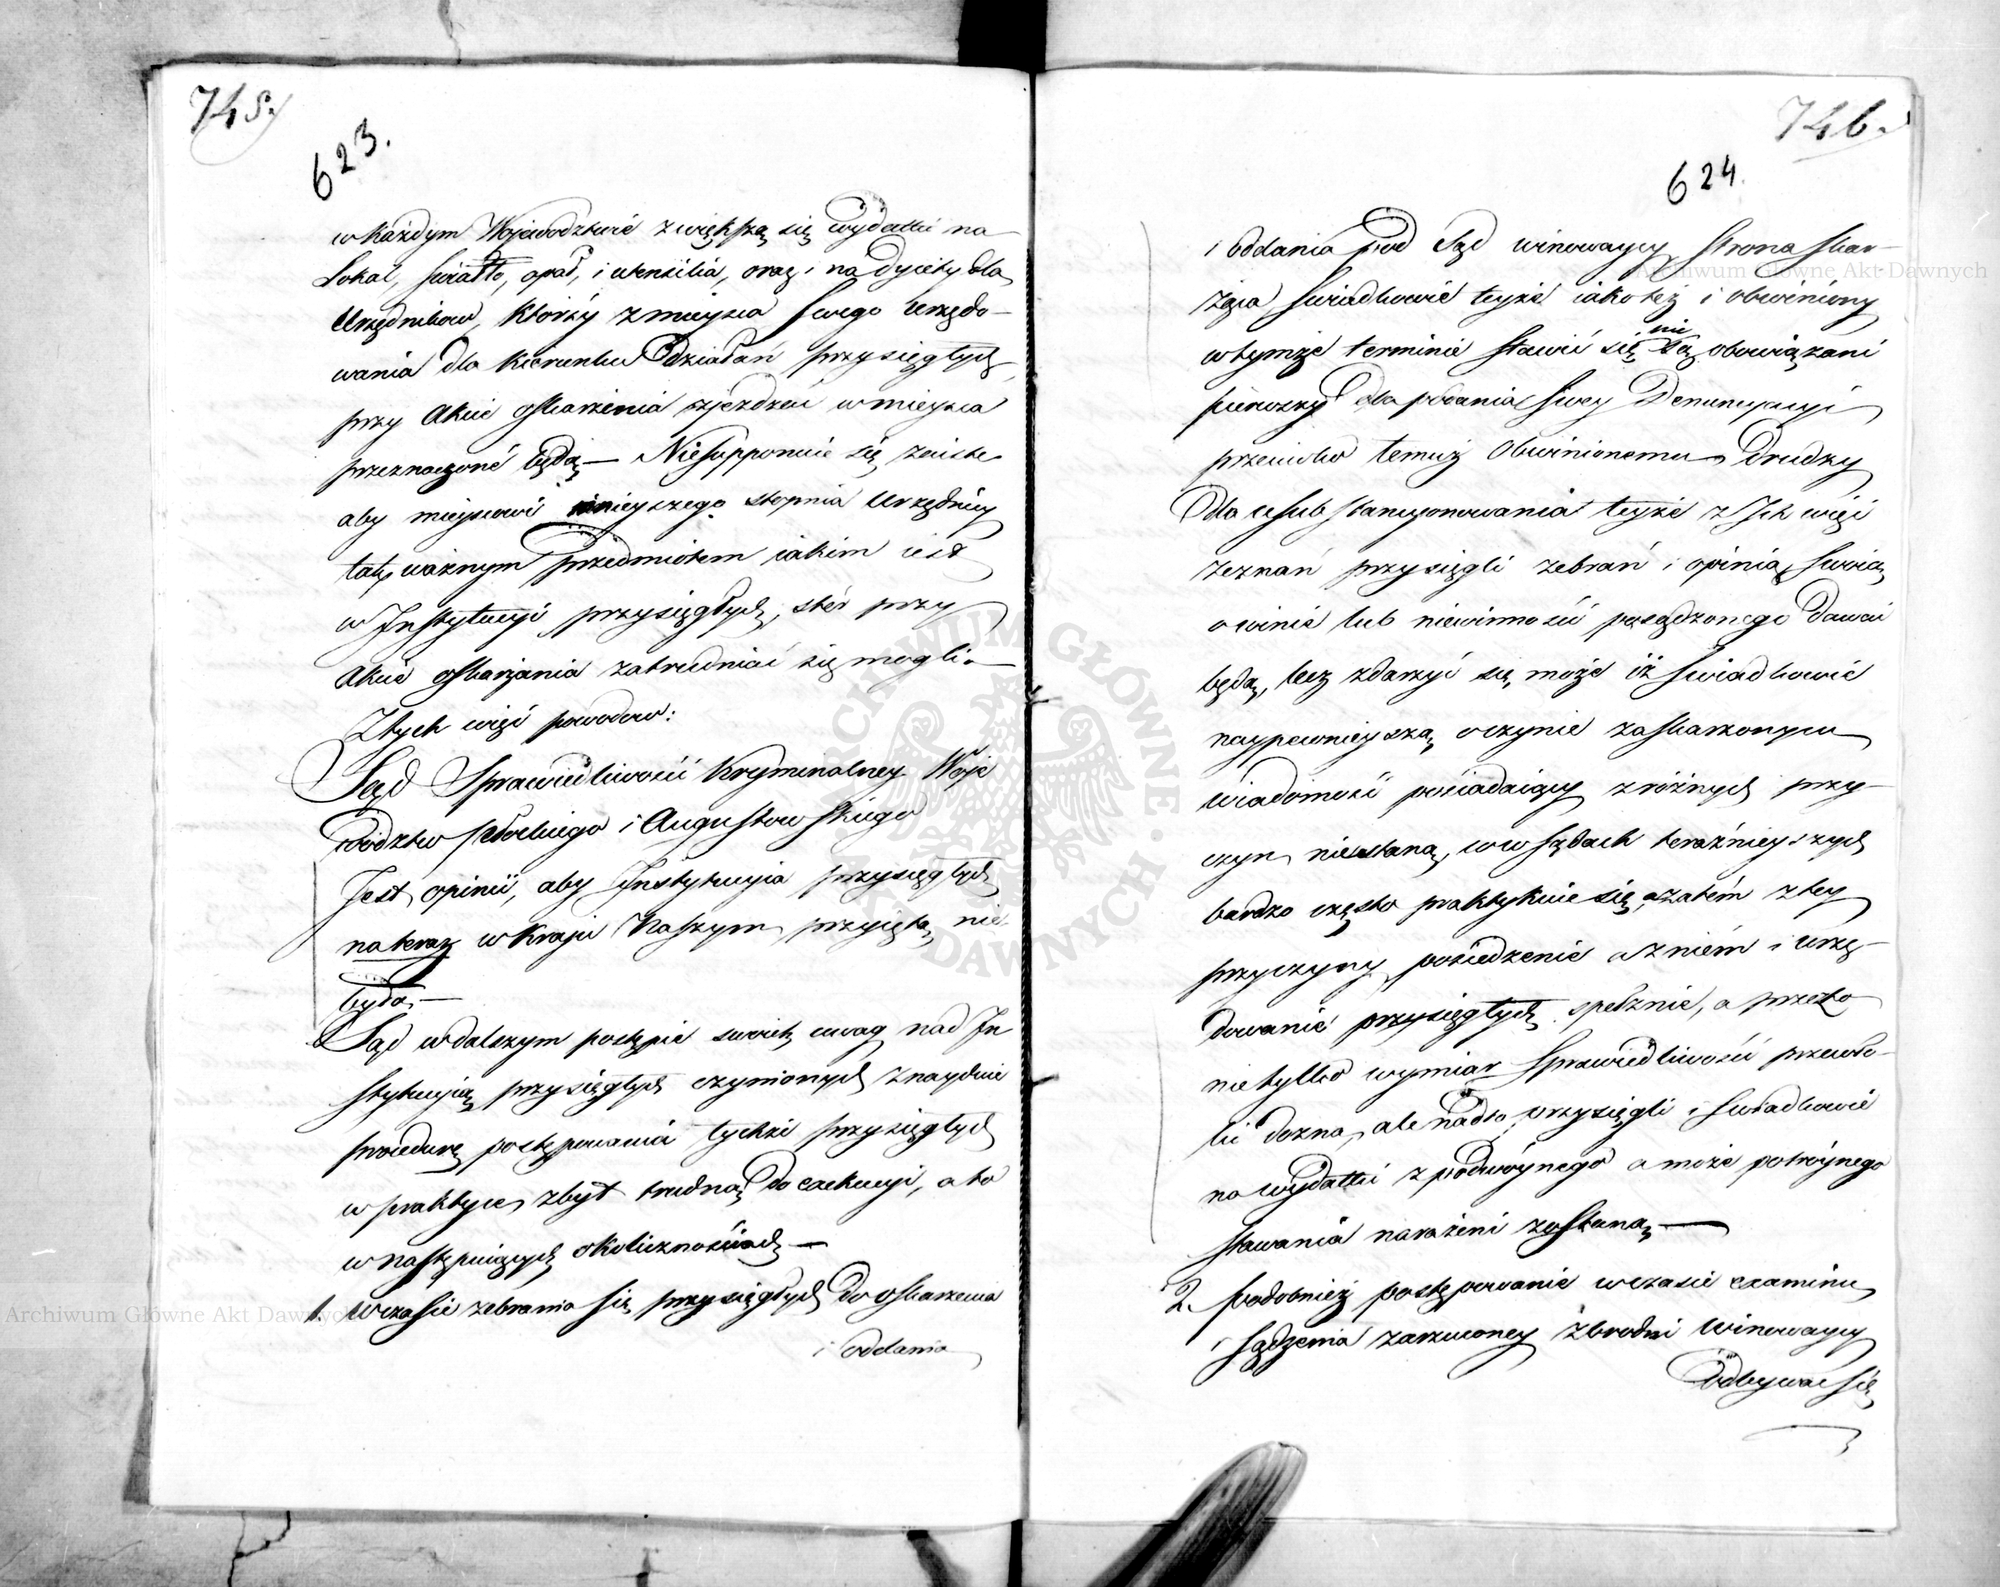 745.
623.
w każdym Wojewodztwie zwiększą się wydatki na
Lokal, światło, opał, i utensilia, oraz i na dyiety dla
Urzędnikow, którzy z mieysca swego Urzędo-
wania dla kierunku działań przysięgłych
przy Akcie oskarżenia zjeżdżać w mieysca
przeznaczoné będą — Niesupponuie się zaiste
aby mieyscowi mnieyszego stopnia Urzędnicy
tak ważnym przedmiotem iakim iest
w Instytucyi przysięgłych, stér przy
Akcie oskarżania zatrudniać się mogli. —
Z tych więc powodow:
Sąd Sprawiedliwości Kryminalney Woje
wodztw Płockiego i Augustowskiego
Jest opinii, aby Instytucyia przysięgłych
na teraz w Kraju Naszym przyiętą nie
była. —
Sąd w dalszym postępie swoich uwag nad In
stytucyią przysięgłych czynionych znayduie
procedurę postępowania tychże przysięgłych
w praktyce zbyt trudną do exekucyi, a to
w następuiących okolicznościach —
1. W czasie zebrania się przysięgłych do oskarżenia
i oddania
746.
624.
i oddania pod Sąd winowaycy Strona skar-
żąca świadkowie teyże iako też i obwiniony
w tymże terminie stawić się nie są obowiązani
pierwszy dla podania swey Denuncyacyi
przeciwko temuż Obwinionemu, Drudzy
dla usubstancyonowania teyże z Ich więc
zeznań przysięgli zebrań i opinią swoią
o winie lub niewinności posądzonego dawać
będą, lecz zdarzyć się może iż świadkowie
naypewnieyszą o czynie zaskarżonym
wiadomość posiadaiący z różnych przy-
czyn niestaną, co w Sądach teraźnieyszych
bardzo często praktykuie się, a zatém z tey
przyczyny posiedzenie a z niém i urzę-
dowanie przysięgłych spełznie, a przeto
nie tylko wymiar Sprawiedliwości przewło-
ki dozna, ale nadto przysięgli i świadkowie
na wydatki z podwóynego a może potróynego
stawania narażeni zostaną. —
2. Podobnież postępowanie w czasie examinu
i sądzenia zarzuconey zbrodni Winowaycy
odbywać się